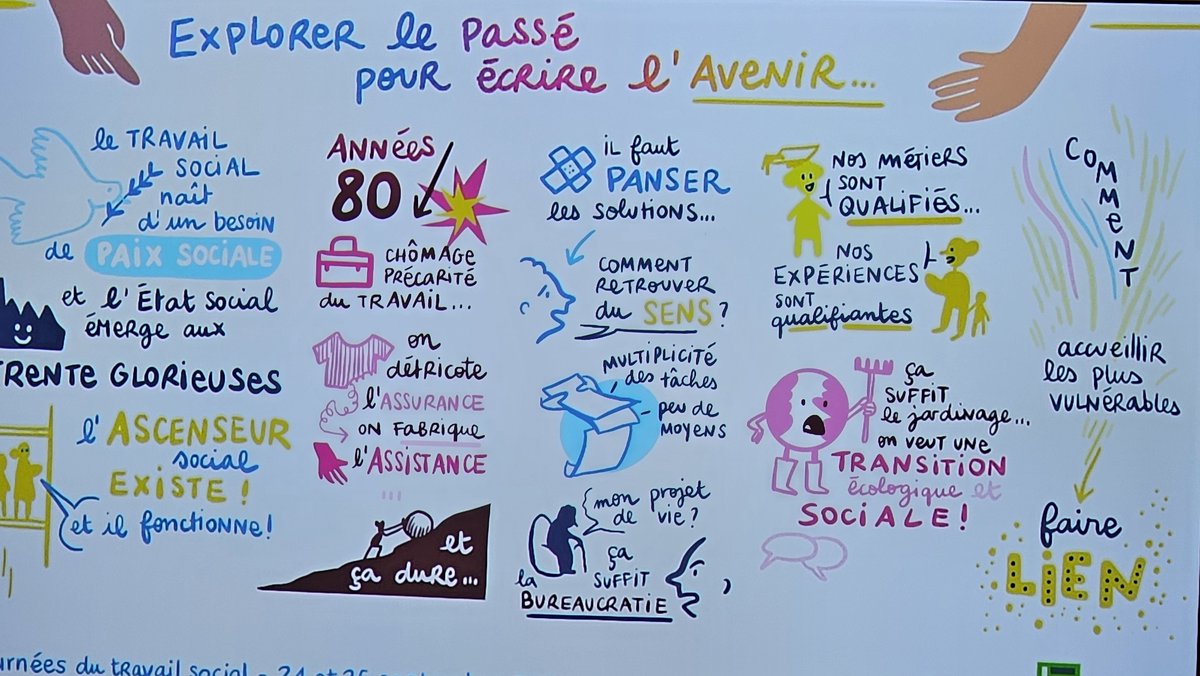 EXPLORER le Passé
pour écrire l'AVENIR...
le TRAVAIL
SOCIAL
naît
d'un besoin
de PAIX SOCIALE
et l'État social
émerge aux
TRENTE GLORIEUSES
l'ASCENSEUR
social
EXISTE !
et il fonctionne !
ANNÉES
80
CHÔMAGE
PRÉCARITÉ
du TRAVAIL...
on
détricote
l'ASSURANCE
ON FABRIQUE
l'ASSISTANCE
...
et
ça dure...
il faut
PANSER
les solutions...
COMMENT
RETROUVER
du SENS ?
MULTIPLICITÉ
des tâches
peu de
moyens
mon projet
de vie ?
ça
suffit
la
BUREAUCRATIE
NOS MÉTIERS
SONT
QUALIFIÉS...
NOS
EXPÉRIENCES
SONT
qualifiantes
ça
SUFFIT
le jardinage...
on veut une
TRANSITION
écologique et
SOCIALE !
COMMENT
accueillir
les plus
vulnérables
faire
LIEN
urnées du travail social - 24 et 25